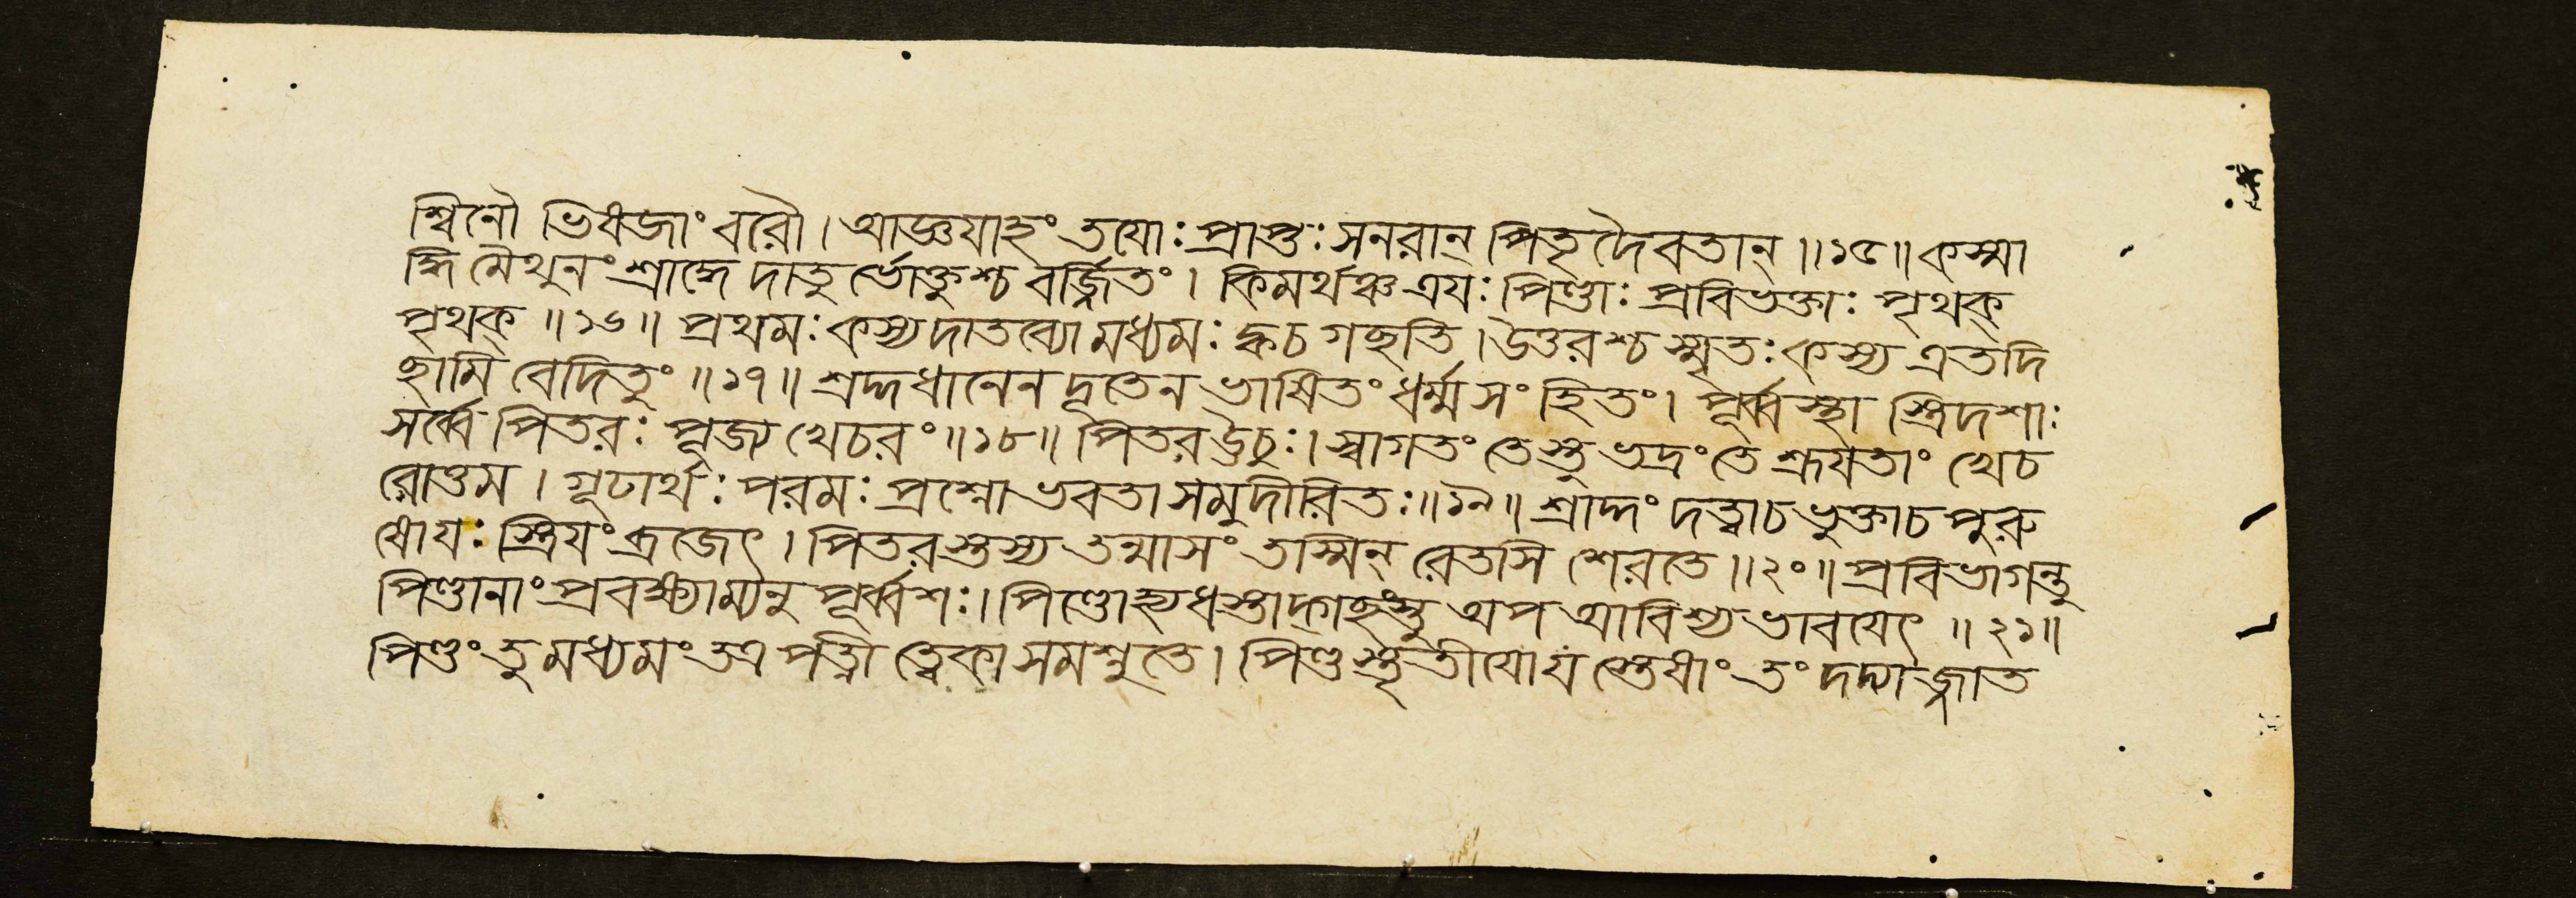 শ্বিনৌ ভিষজাং বরৌ। আজ্ঞযাহং তযোঃ প্রাপ্তঃ সনরান্ পিতৃ দৈবতান্॥১৫॥ কস্মা
দ্ধি মৈথুনং শ্রাদ্ধে দাতু র্ভোক্তুশ্চ বর্জ্জিতং। কিমর্থঞ্চ ত্রযঃ পিণ্ডাঃ প্রবিভক্তাঃ পৃথক্
পৃথক্॥১৬॥ প্রথমঃ কস্য দাতব্যো মধ্যমঃ ক্বচ গচ্ছতি। উত্তরশ্চ স্মৃতঃ কস্য এতদি
চ্ছামি বেদিতুং॥১৭॥ শ্রদ্দধানেন দূতেন ভাষিতং ধর্ম্ম সংহিতং। পূর্ব্বস্থা স্ত্রিদশাঃ
সর্ব্বে পিতরঃ পূজ্য খেচরং॥১৮॥ পিতর ঊচুঃ। স্বাগতং তেস্তু ভদ্রং তে শ্রূযতাং খেচ
রোত্তম। গূঢার্থঃ পরমঃ প্রশ্নো ভবতা সমুদীরিতঃ॥১৯॥ শ্রাদ্দং দত্ত্বাচ ভুক্তাচ পুরু
ষো যঃ স্ত্রিযং ব্রজেৎ। পিতরস্তস্য তন্মাসং তস্মিন্ রেতসি শেরতে॥২০॥ প্রবিভাগন্তু
পিণ্ডানাং প্রবক্ষ্যাম্যনু পূর্ব্বশঃ। পিণ্ডোহ্যধস্তাদ্গচ্ছংস্তু অপ আবিশ্য ভাবযেৎ॥২১॥
পিণ্ডং তু মধ্যমং তত্র পত্নী ত্বেকা সমশ্নুতে। পিণ্ড স্তৃতীযো য স্তেষাং তং দদ্যাজ্জাত